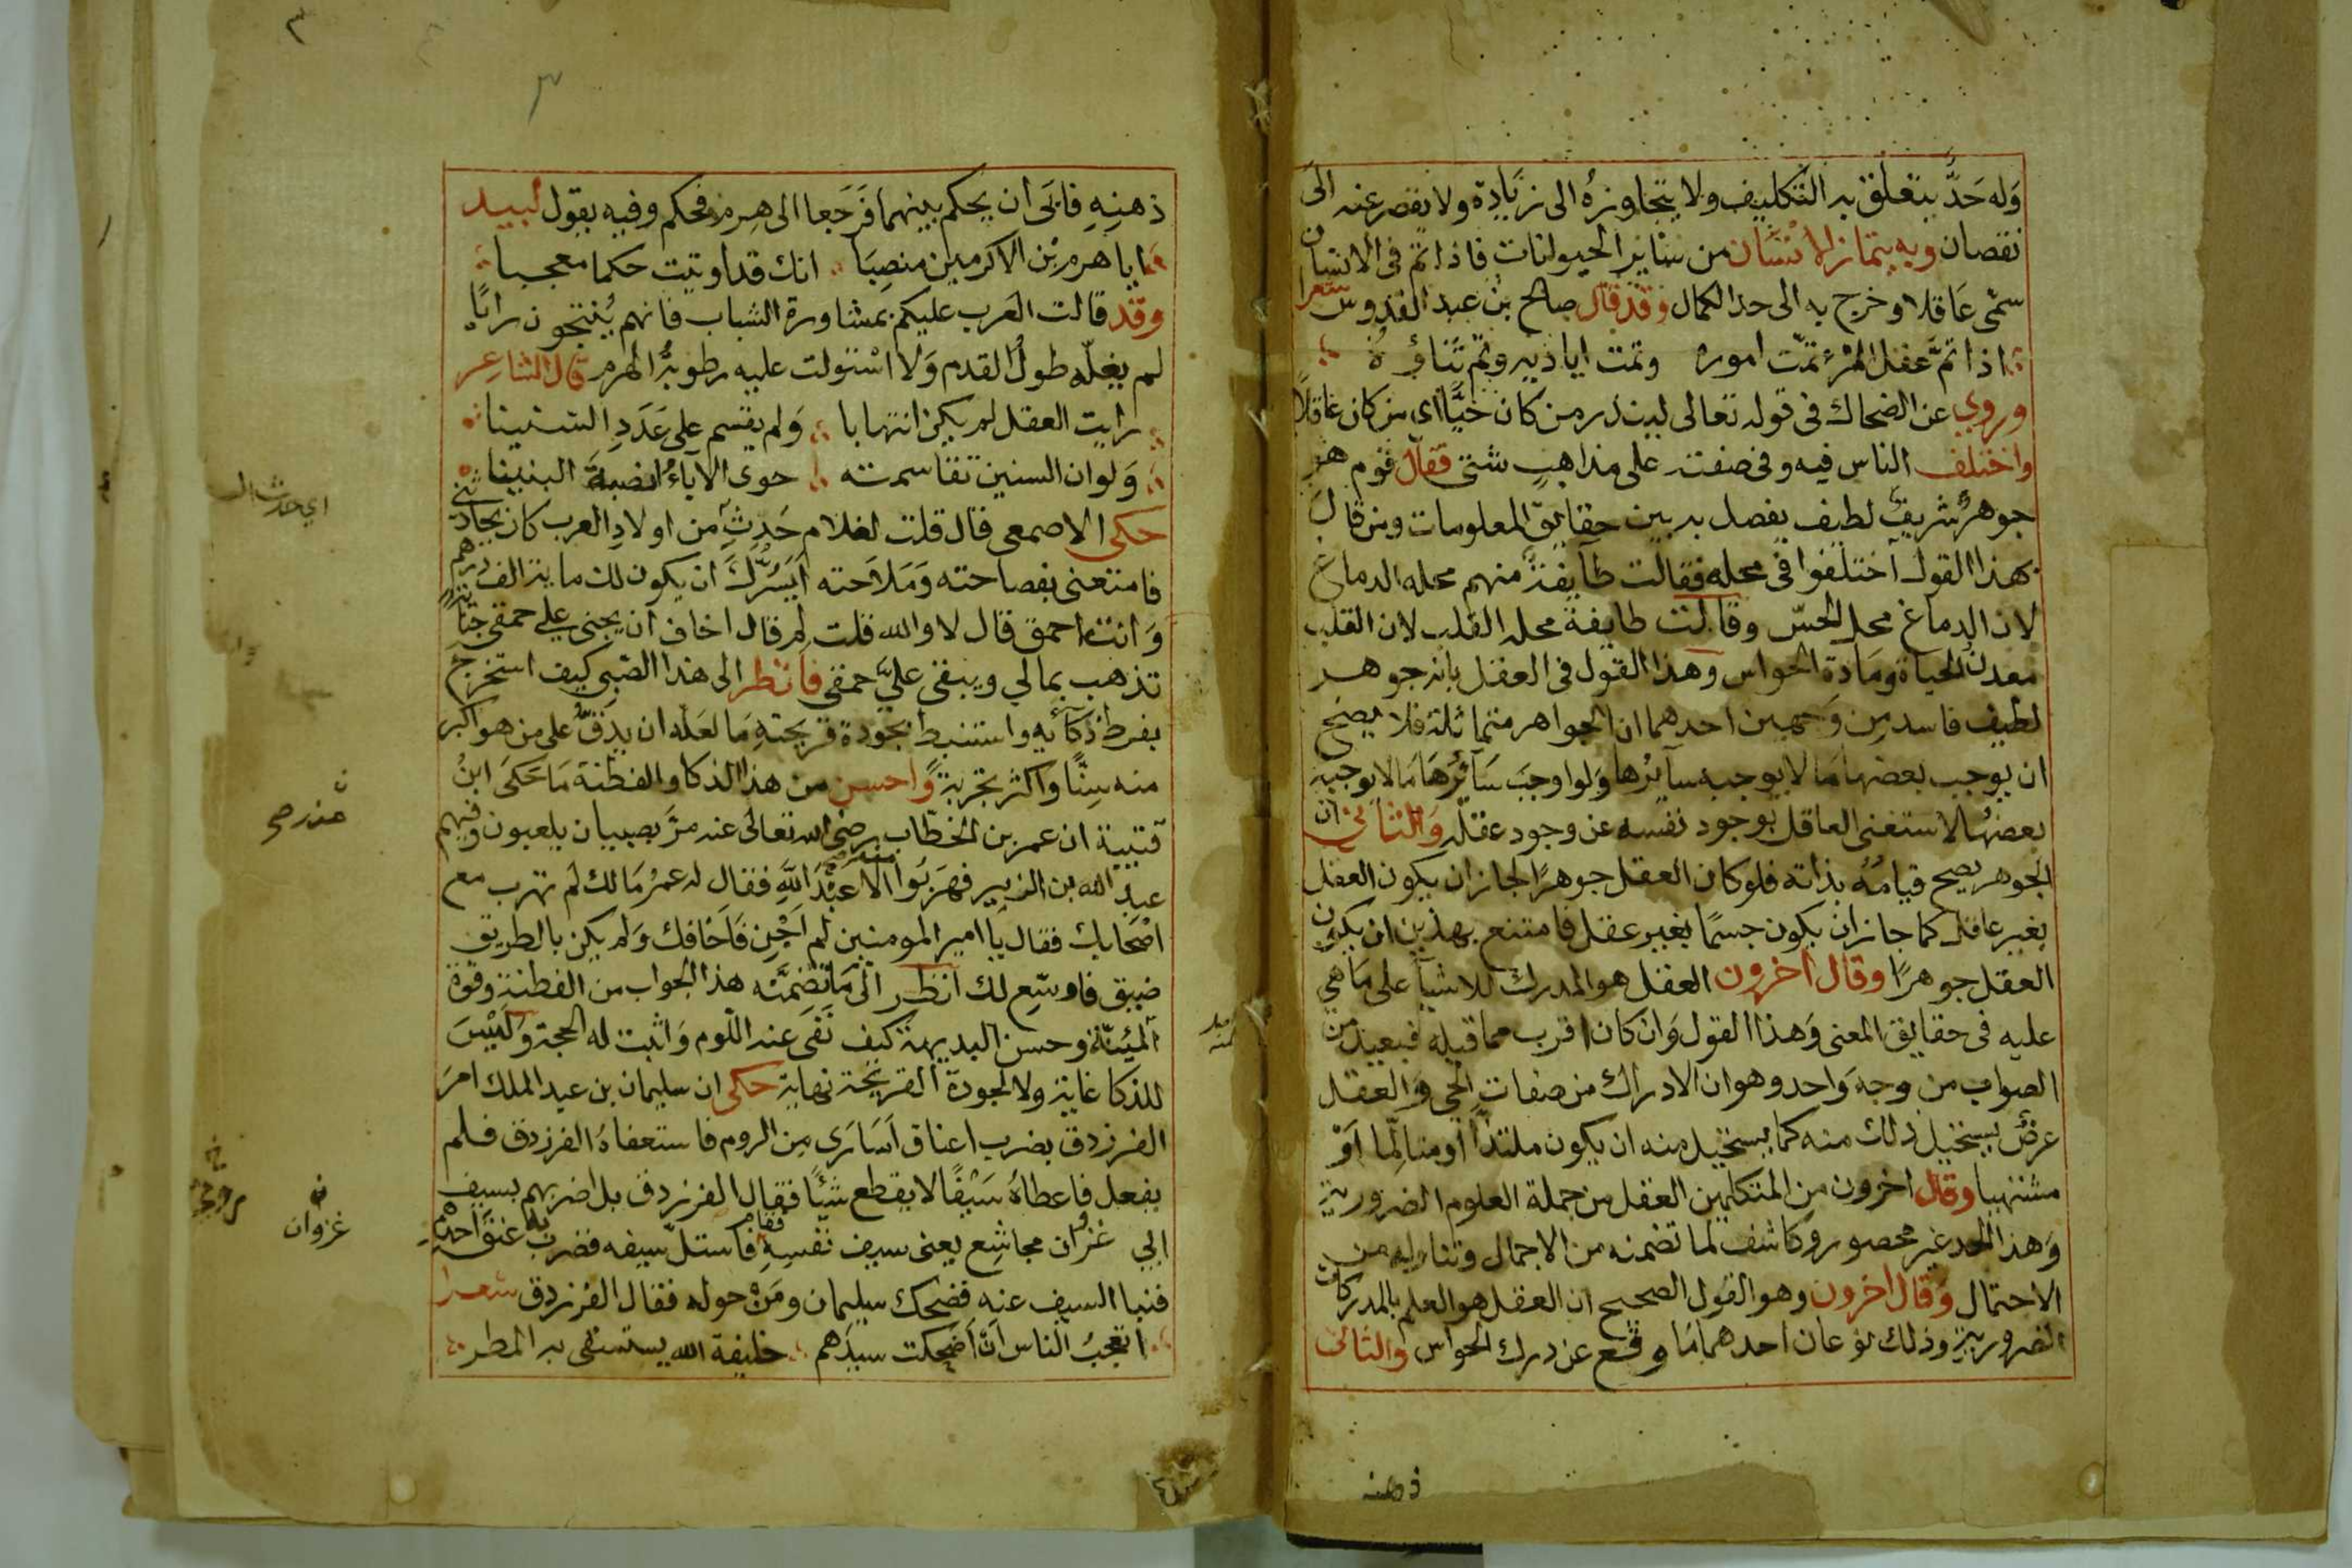 وَله حَدٌّ يتعلق به التَّكليف ولا يتجاوزهُ الى زيَادة ولا يقصر عنه الى
نقصان وبه يمتاز الانسَان من سَاير الحيوانات فاذا تمّ فى الانسان
سمّى عَاقلا وخرج به الى حد الكمال وقد قال صالح بن عبد القدوس شعرا
اذا تمَّ عقل المرْء تمّت اموره وتمت اياديه وتم ثناؤهُ
وروي عن الضحاك فى قوله تعالى لينذر من كان حيًّا اى من كان عاقلًا
واختلف الناس فيه وفى صفته على مذاهبٍ شتى فقال قوم هو
جوهرٌ شريفٌ لطيف يفصل به بين حقايق المعلومات ومن قال
بهذا القول اختلفوا فى محله فقالت طايفة منهم محله الدماغ
لان الدماغ محل الحسّ وقالت طايفة محله القلب لان القلب
معدن الحياة ومادة الحواس وهذا القول فى العقل بانه جوهر
لطيف فاسد من وَجهين احدهما ان الجواهر متماثلة فلا يصح
ان يوجب بعضها مَا لا يوجبه سآيرُها وَلو اوجبَ سَآئرُهَا مَا لا يوجبه
بعضهُا لاستغنى العاقل بوجود نفسه عن وجود عقله وَالثانى ان
الجوهر يصح قيامُهُ بذاته فلو كان العقل جوهرًا لجاز ان يكون العقل
بغير عاقل كما جاز ان يكون جسمًا بغير عقل فامتنع بهذين ان يكون
العقل جوهرًا وقال اخرون العقل هو المدرك للاشيآ على مَا هي
عليه فى حقايق المعنى وَهذا القول وَان كان اقرب مما قبله فبعيد من
الصواب من وجه وَاحد وهو ان الادراك من صفات الحي وَالعقل
عرضٌ يستحيل ذلك منه كما يستحيل منه ان يكون ملتذًّا او متالِّما اَوْ
مشتهيا وقال اخرون من المتكلمين العقل من جملة العلوم الضرورية
وَهذا الحد غير محصور وكاشف لما تضمنه من الاجمال وتناوله من
الاحتمال وَقال اخرون وهو القول الصحيح ان العقل هو العلم بالمدركات
الضرورية وذلك نوعان احدهما مَا وقع عن درك الحواس والثانى
ذهنه
٣
ذهنِهِ فابَى ان يحكم بينهما فَرَجَعا الى هِرم فحكم وفيه يقول لبيد
ايا هرم بْن الاكرمين منصِبَا انك قد اوتيت حكما معجبا
وقد قالت العَرب عليكم بمشاورة الشباب فانهم يُنتجون رايًا
لم يغلّه طولُ القدم وَلا اسْتولت عليه رطوبةُ الهرم قال الشاعر
رايت العقل لم يكن انتهابا وَلم يقسم على عَدَدِ السنينا
وَلو ان السنين تقاسمته حوى الاباءُ انصبةَ البنينا
حكى الاصمعى قال قلت لغلام حَدِثٍ من اولادِ العرب كان يحادثنى
فامتعنى بفصاحته وَمَلاَحته اَيَسُرُّكَ ان يكون لك ماية الف درهم
وَانت احمق قال لا والله قلت لِم قال اخاف ان يجنى علي حمقى جنايةً
تذهب بمالي ويبقى عليَّ حمقى فانظر الى هذا الصّبى كيف استخرج
بفرط ذكآئه واستنبط بجودة قريحتهِ مَا لعَله ان يدقَّ على من هو اكبر
منه سِنًّا واكثر تجربةً وَاحسن من هذا الذكا والفطنة مَا حَكَى ابنُ
قتيبة ان عمر بن الخطّاب رضى الله تعالى عنه مرَّ بصبيان يلعبون وفيهم
عبد الله بن الزبير فهَرَبَوا منه الا عَبْدَ اللّهِ فقال له عمرُ مَا لك لم تهرب مع
اصْحَابك فقال يَا امير المومنين لم اَجْنِ فَاَخافك وَلم يكن بالطريق
ضيق فاوسّع لك انظر الى مَا تضمَّنه هذا الجواب من الفطنة وقوة
المُنّة وحسن البديهة كيف نَفى عنه اللّوم وَاثبت له الحجة وَلَيْسَ
للذكا غاية ولا لجودة القريحة نهاية حكى ان سليمان بن عبد الملك امرَ
الفرزدق بضرب اعناق اَسَارَى مِن الروم فاستعفاهُ الفرزدق فلم
يفعل فاعطاهُ سَيْفًا لا يقطع شيًا فقال الفرزدق بل اضربهم بسيف
ابي غزوان مجاشِع يعنى سيف نفسِهِ فقام فاستلّ سيفه فضرب به عنق احدهم
فنبا السيف عنه فضحك سليمان ومَن حوله فقال الفرزدق شعرا
اَتعجبُ الناس اَن اَضحكت سيدَهم خليفة الله يستسقى به المطر
غزوان